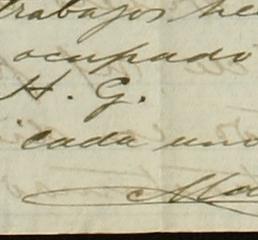 trabajos he
ocupado
H. G.
cada uno